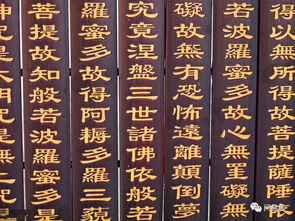 得以無所得故菩提薩
若波羅蜜多故心無罣礙無
礙故無有恐怖遠離顛倒夢
究竟涅盤三世諸佛依般若
羅蜜多故得阿耨多羅三藐
菩提故知般若波羅蜜多是
神咒是大明咒是無上咒是